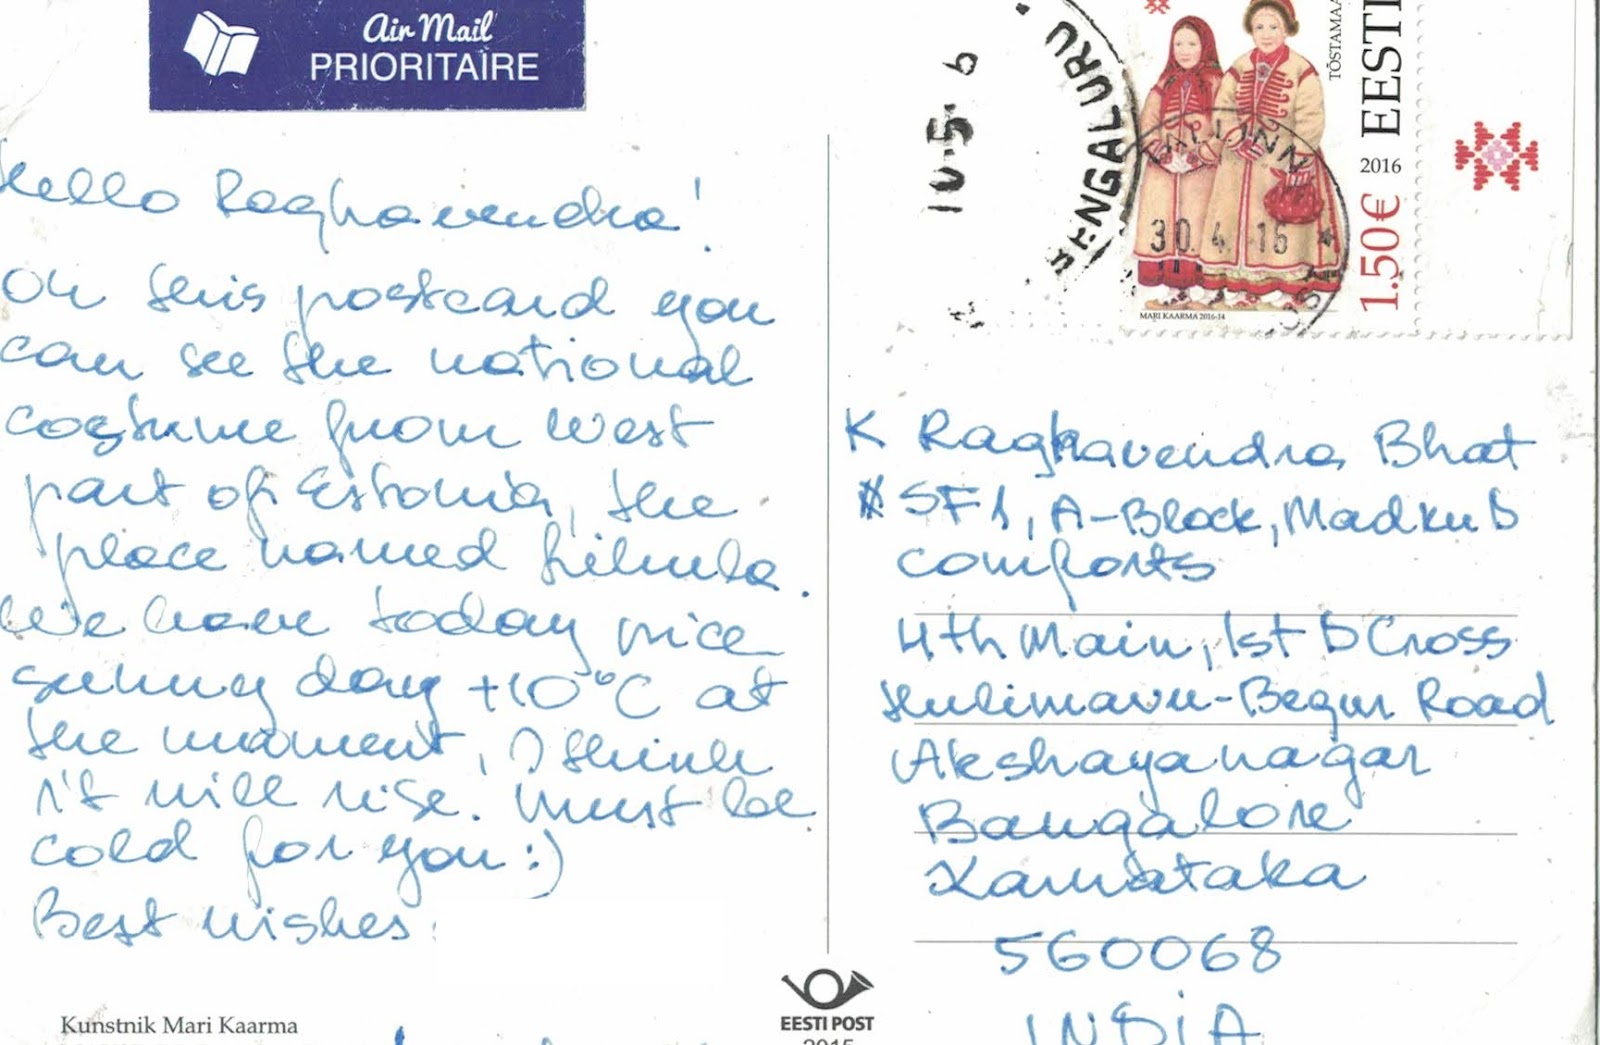 Air Mail
PRIORITAIRE
Hello Raghavendra!
On this postcard you
can see the national
costume from west
part of Estonia, the
place named Lihula.
We have today nice
sunny day +10°C at
the moment, I think
it will rise. Must be
cold for you :)
Best wishes
Kunstnik Mari Kaarma
BENGALURU
TÕSTAMAA
EESTI
2016
1.50€
MARI KAARMA 2016-14
TALLINN
30. 4. 16
K Raghavendra Bhat
# SF1, A-Block, Madhu D
comforts
4th Main, 1st D Cross
Hulimavu-Begur Road
Akshayanagar
Bangalore
Karnataka
560068
INDIA
EESTI POST
2015